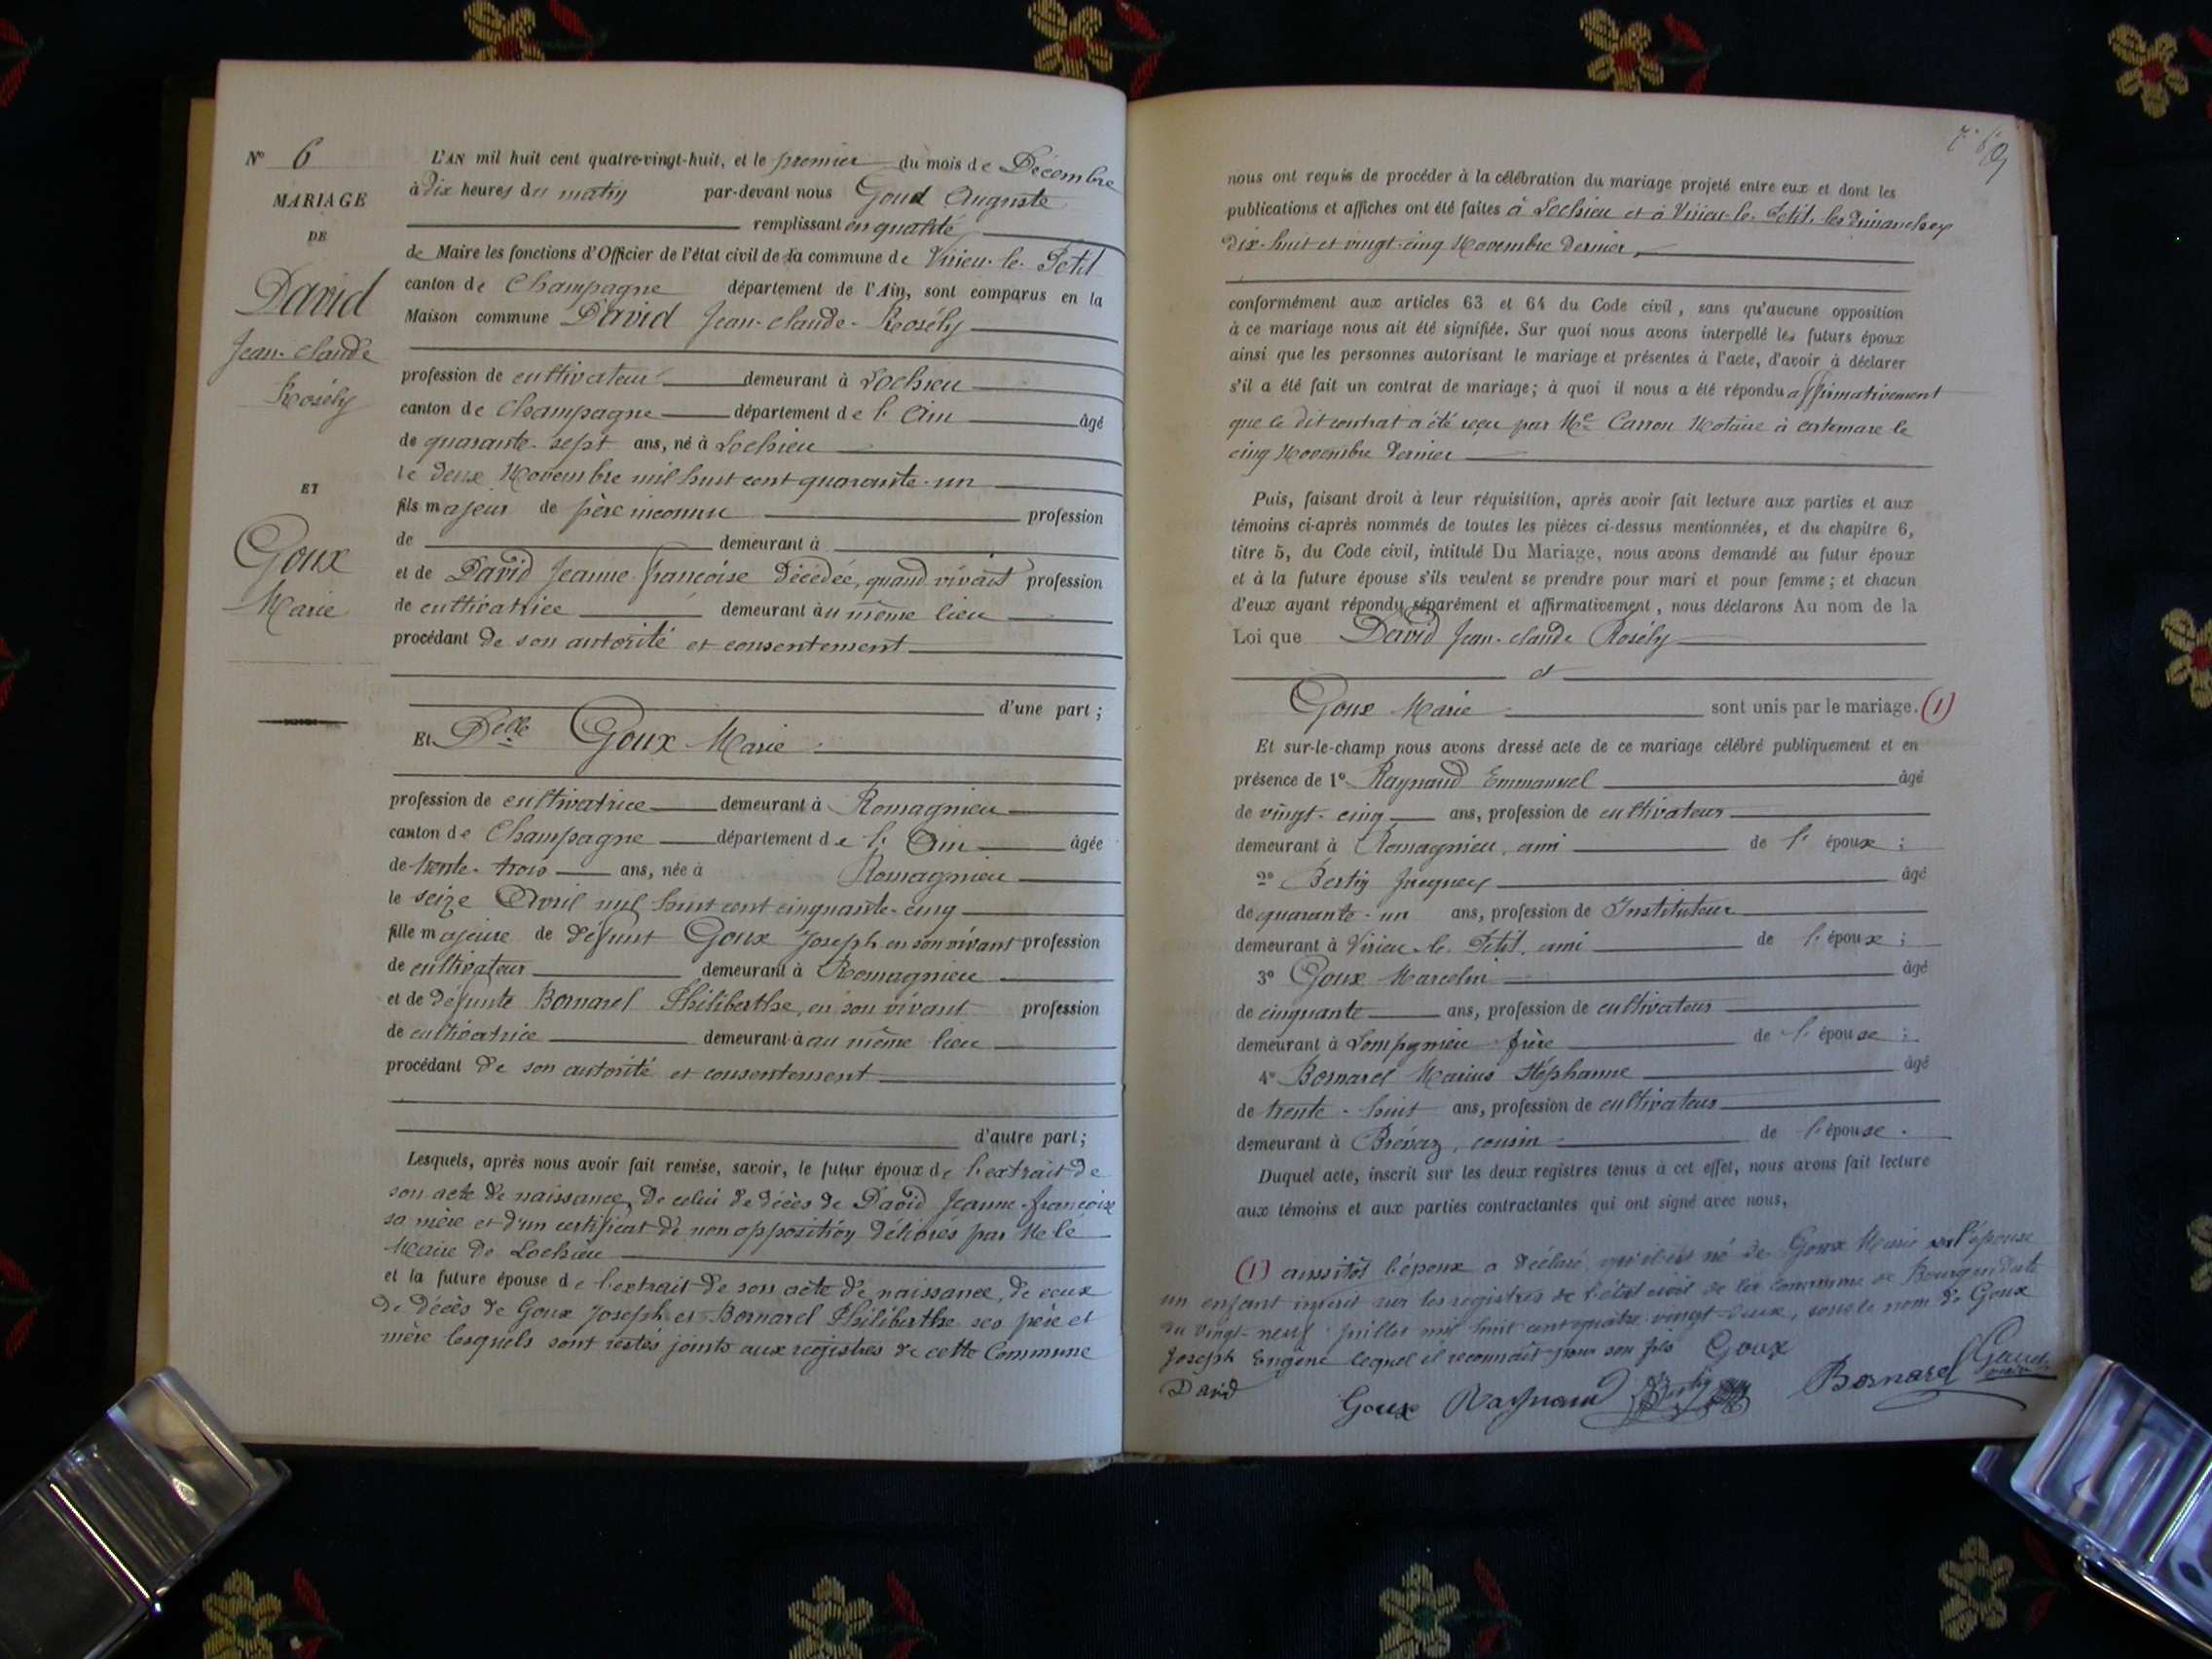 N° 6
MARIAGE
DE
David
Jean-Claude
Rosély
ET
Goux
Marie
L'AN mil huit cent quatre-vingt-huit, et le premier du mois de Décembre
à dix heures du matin par-devant nous Goud Auguste
remplissant en qualité
de Maire les fonctions d'Officier de l'état civil de la commune de Virieu-le-Petit
canton de Champagne département de l'Ain, sont comparus en la
Maison commune David Jean-Claude-Rosély
profession de cultivateur demeurant à Lochieu
canton de Champagne département de l'Ain âgé
de quarante-sept ans, né à Lochieu
le deux Novembre mil huit cent quarante-un
fils majeur de père inconnu profession
de demeurant à
et de David Jeanne-Françoise décédée, quand vivait profession
de cultivatrice demeurant au même lieu
procédant de son autorité et consentement
d'une part;
Et Delle Goux Marie
profession de cultivatrice demeurant à Romagnieu
canton de Champagne département de l'Ain âgée
de trente-trois ans, née à Romagnieu
le seize Avril mil huit cent cinquante-cinq
fille majeure de défunt Goux Joseph en son vivant profession
de cultivateur demeurant à Romagnieu
et de défunte Bornarel Philiberthe, en son vivant profession
de cultivatrice demeurant à au même lieu
procédant de son autorité et consentement
d'autre part;
Lesquels, après nous avoir fait remise, savoir, le futur époux de l'extrait de
son acte de naissance, de celui de décès de David Jeanne-Françoise
sa mère et d'un certificat de non opposition délivrés par Mr le
Maire de Lochieu
et la future épouse de l'extrait de son acte de naissance, de ceux
de décès de Goux Joseph et Bornarel Philiberthe ses père et
mère lesquels sont restés joints aux registres de cette Commune
nous ont requis de procéder à la célébration du mariage projeté entre eux et dont les
publications et affiches ont été faites à Lochieu et à Virieu-le-Petit, les dimanches
dix-huit et vingt-cinq Novembre dernier,
conformément aux articles 63 et 64 du Code civil, sans qu'aucune opposition
à ce mariage nous ait été signifiée. Sur quoi nous avons interpellé les futurs époux
ainsi que les personnes autorisant le mariage et présentes à l'acte, d'avoir à déclarer
s'il a été fait un contrat de mariage; à quoi il nous a été répondu affirmativement
que le dit contrat a été reçu par Me Carron Notaire à Artemare le
cinq Novembre dernier
Puis, faisant droit à leur réquisition, après avoir fait lecture aux parties et aux
témoins ci-après nommés de toutes les pièces ci-dessus mentionnées, et du chapitre 6,
titre 5, du Code civil, intitulé Du Mariage, nous avons demandé au futur époux
et à la future épouse s'ils veulent se prendre pour mari et pour femme; et chacun
d'eux ayant répondu séparément et affirmativement, nous déclarons Au nom de la
Loi que David Jean-Claude Rosély
et
Goux Marie sont unis par le mariage. (1)
Et sur-le-champ nous avons dressé acte de ce mariage célébré publiquement et en
présence de 1° Raynaud Emmanuel âgé
de vingt-cinq ans, profession de cultivateur
demeurant à Romagnieu, ami de l'époux;
2° Bertin Jacques âgé
de quarante-un ans, profession de Instituteur
demeurant à Virieu-le-Petit, ami de l'époux;
3° Goux Marcelin âgé
de cinquante ans, profession de cultivateur
demeurant à Lompgnieu frère de l'épouse;
4° Bornarel Marius Stéphanne âgé
de trente-huit ans, profession de cultivateur
demeurant à Brénaz, cousin de l'épouse.
Duquel acte, inscrit sur les deux registres tenus à cet effet, nous avons fait lecture
aux témoins et aux parties contractantes qui ont signé avec nous,
(1) aussitôt l'époux a déclaré qu'il est né de Goux Marie l'épouse
un enfant inscrit sur les registres de l'état civil de la commune de
du vingt-neuf juillet mil huit cent quatre-vingt-deux, sous le nom de Goux
Joseph Eugène lequel il reconnaît pour son fils Goux
David Goux Raynaud Bertin Bornarel Goud